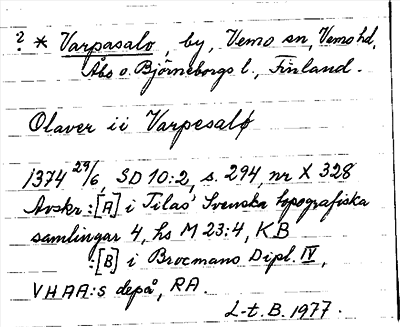 ? * Varpasalo, by, Vemo sn, Vemo hd,
Åbo o. Björneborgs l., Finland.
Olaver ii Varpesalø
1374 29/6, SD 10:2, s. 294, nr X 328
Avskr.: [A] i Tilas' Svenska topografiska
samlingar 4, hs M 23:4, KB
: [B] i Brocmans Dipl. IV,
VHAA:s depå, RA.
L-t. B. 1977.